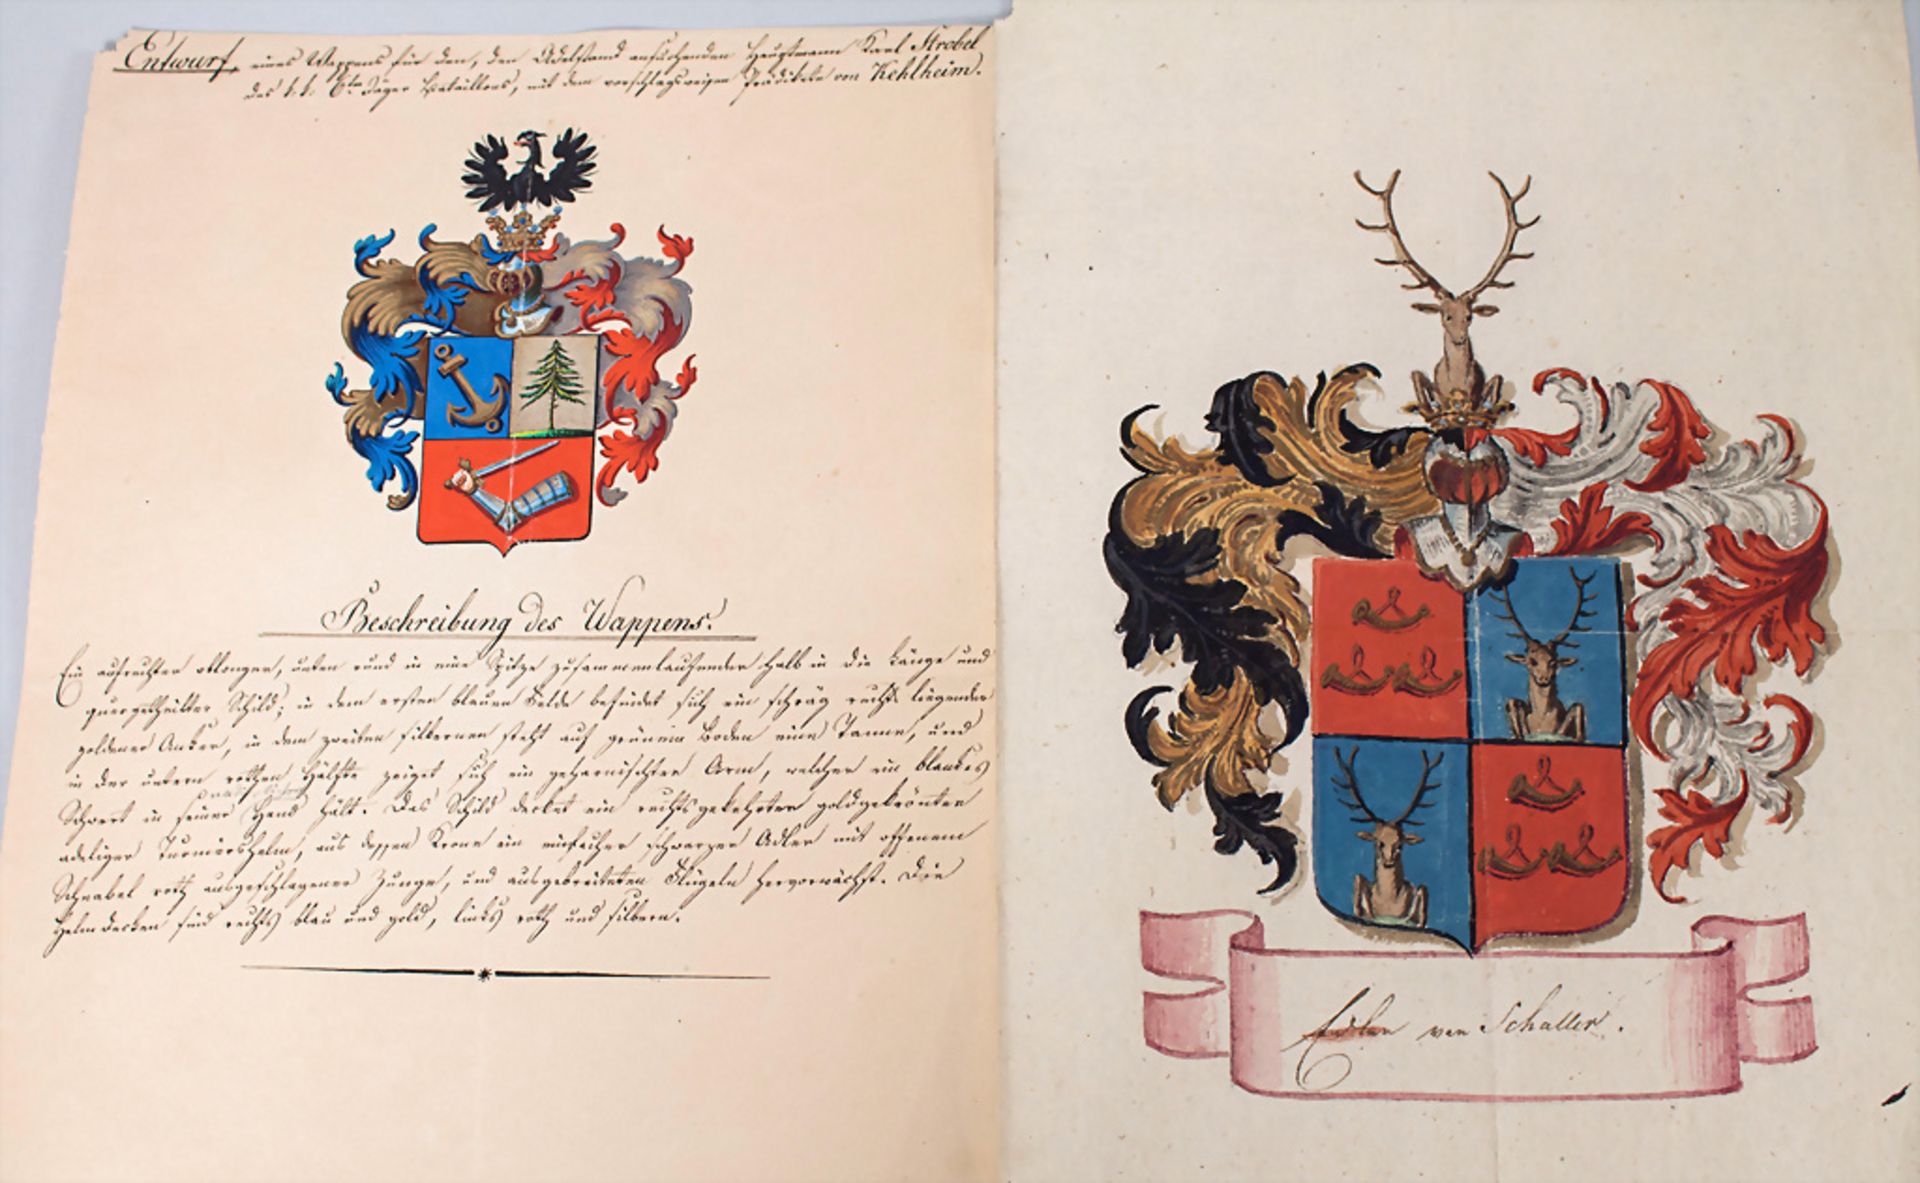 Entwurf, eines Wappens für den, den Adelstand ansuchenden Hauptmann Karl Strobel
des k: k: 6ten Jäger Bataillons, mit dem vorschlagsweisen Prädikate von Kehlheim.
Beschreibung des Wappens.
Ein aufrechter oblonger, unten rund in eine Spitze zusammenlaufender halb in die Länge und
quergetheilter Schild; in dem ersten blauen Felde befindet sich ein schräg rechts liegender
goldener Anker, in dem zweiten silbernen steht auf grünem Boden eine Tanne, und
in der untern rothen Hälfte zeiget sich ein geharnischter Arm, welcher ein blankes
Schwert in seiner Hand hält. Das Schild decket ein rechtsgekehrter goldgekrönter
adeliger Turniershelm, aus dessen Krone ein einfacher schwarzer Adler mit offenem
Schnabel roth ausgeschlagener Zunge, und ausgebreiteten Flügeln hervorwächst. Die
Helmdecken sind rechts blau und gold, links roth und silbern.
Edlen von Schaller.